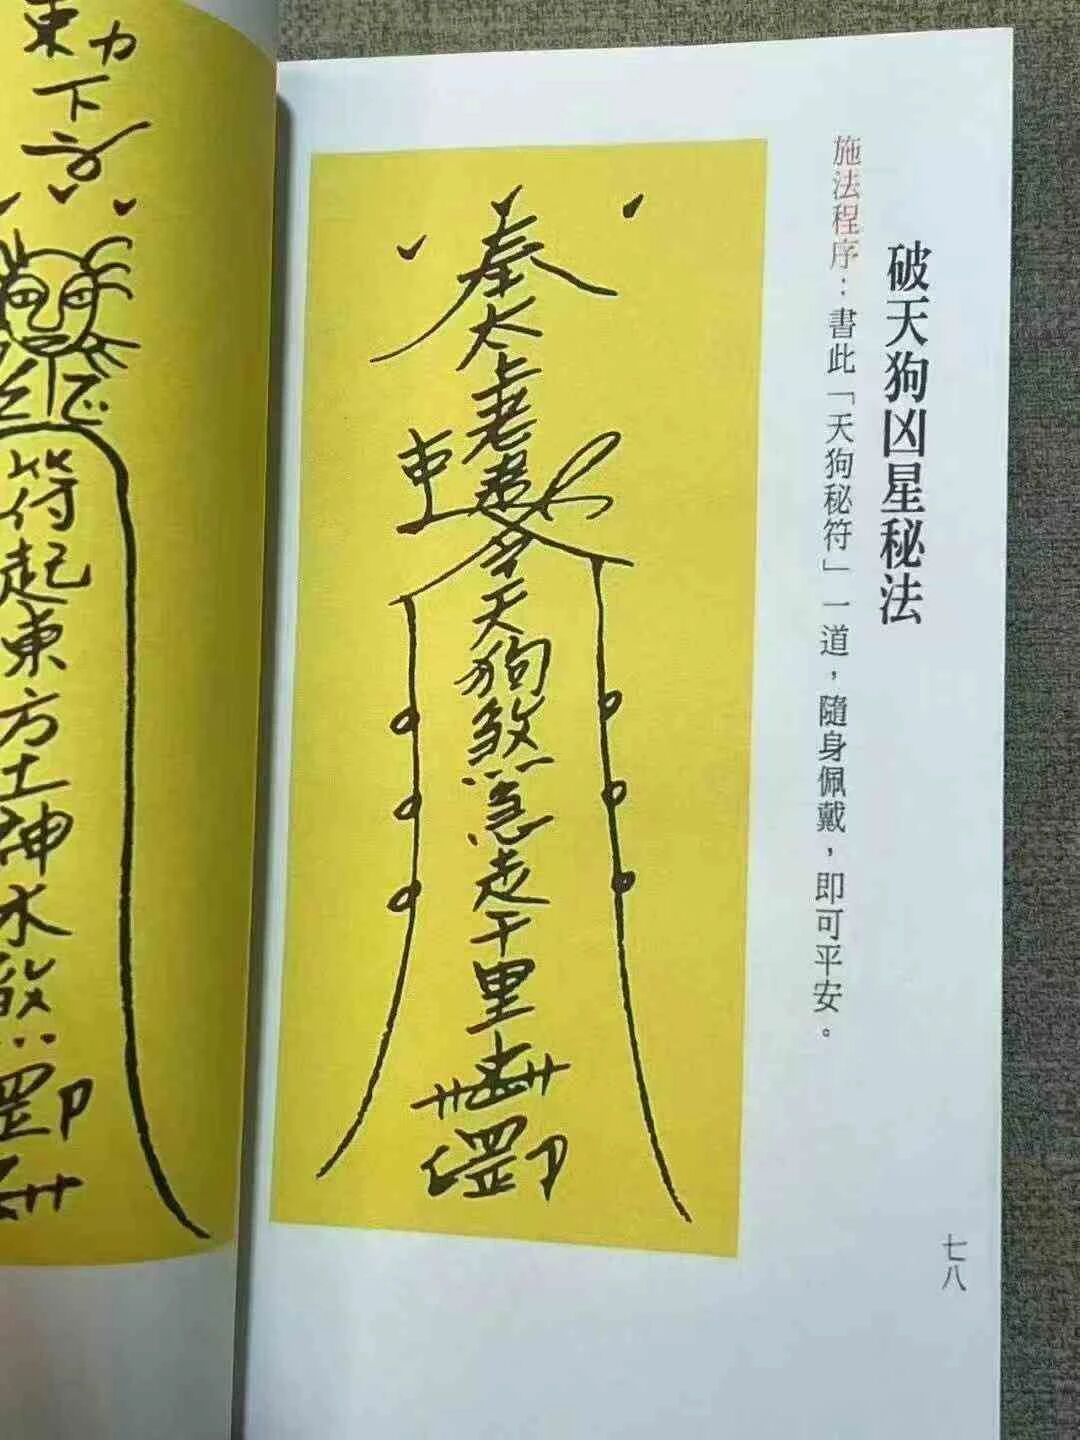 破天狗凶星秘法
施法程序：書此「天狗秘符」一道，隨身佩戴，即可平安。
奉太上老君
令天狗煞急走千里
七八
下
符起東方土神水煞罡